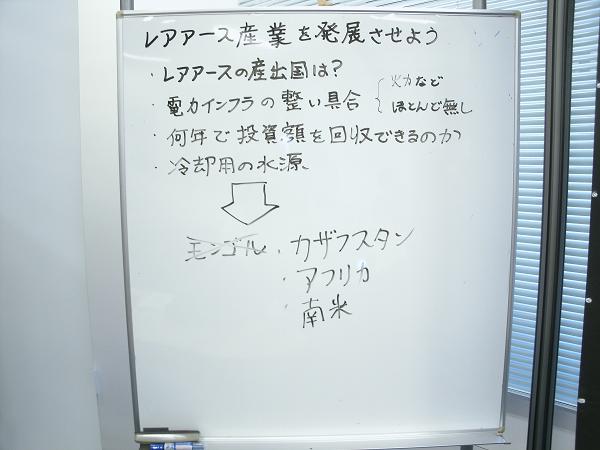 レアアース産業を発展させよう
・レアアースの産出国は?
・電力インフラの整い具合 { 火力など
ほとんど無し
・何年で投資額を回収できるのか
・冷却用の水源
モンゴル ・カザフスタン
・アフリカ
・南米